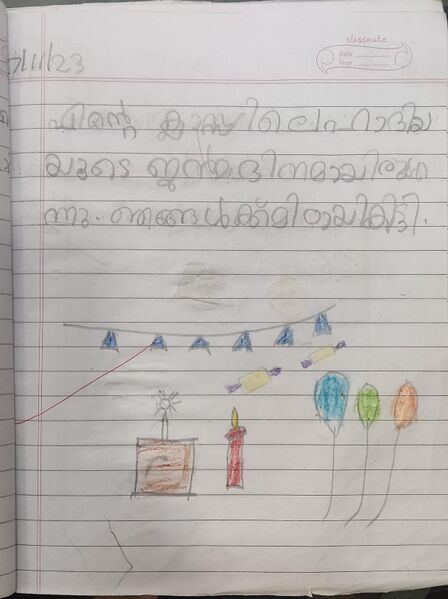 classmate
Date
Page
7/11/23
എന്റെ ക്ലാസ്സിലെ ഹാദിയ
യുടെ ജന്മദിനമായിരു
ന്നു. ഞങ്ങൾക്ക് മിഠായികിട്ടി.